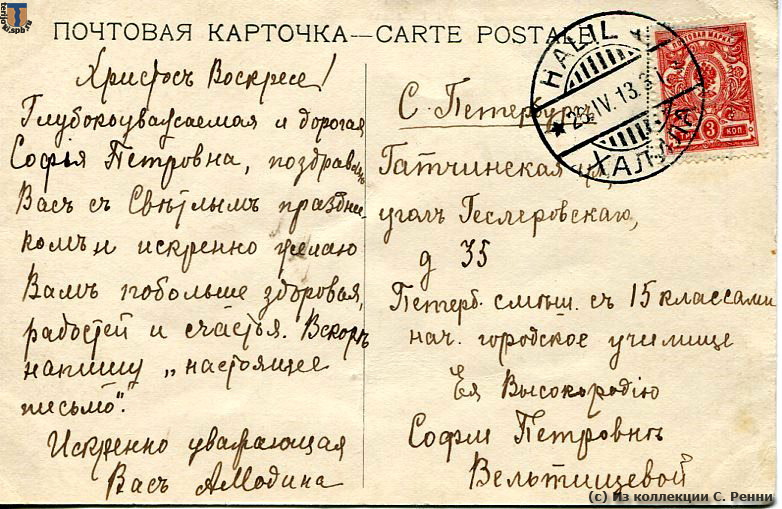 terijoki.spb.ru
ПОЧТОВАЯ КАРТОЧКА—CARTE POSTALE
Христосъ Воскресе!
Глубокоуважаемая и дорогая
Софья Петровна, поздравляю
Васъ съ Свѣтлымъ праздни-
комъ и искренно желаю
Вамъ побольше здоровья,
радостей и счастья. Вскорѣ
напишу „настоящее
письмо“.
Искренно уважающая
Васъ АМодина
HALILA
26.IV.13.3
ХАЛИЛА
ПОЧТОВАЯ МАРКА
3
КОП
С. Петербургъ
Гатчинская ул,
уголъ Геслеровскаго,
д 35
Петерб. смѣш. съ 15 классами
нач. городское училище
Ея Высокородію
Софьи Петровнѣ
Вельтищевой
(c) Из коллекции С. Ренни